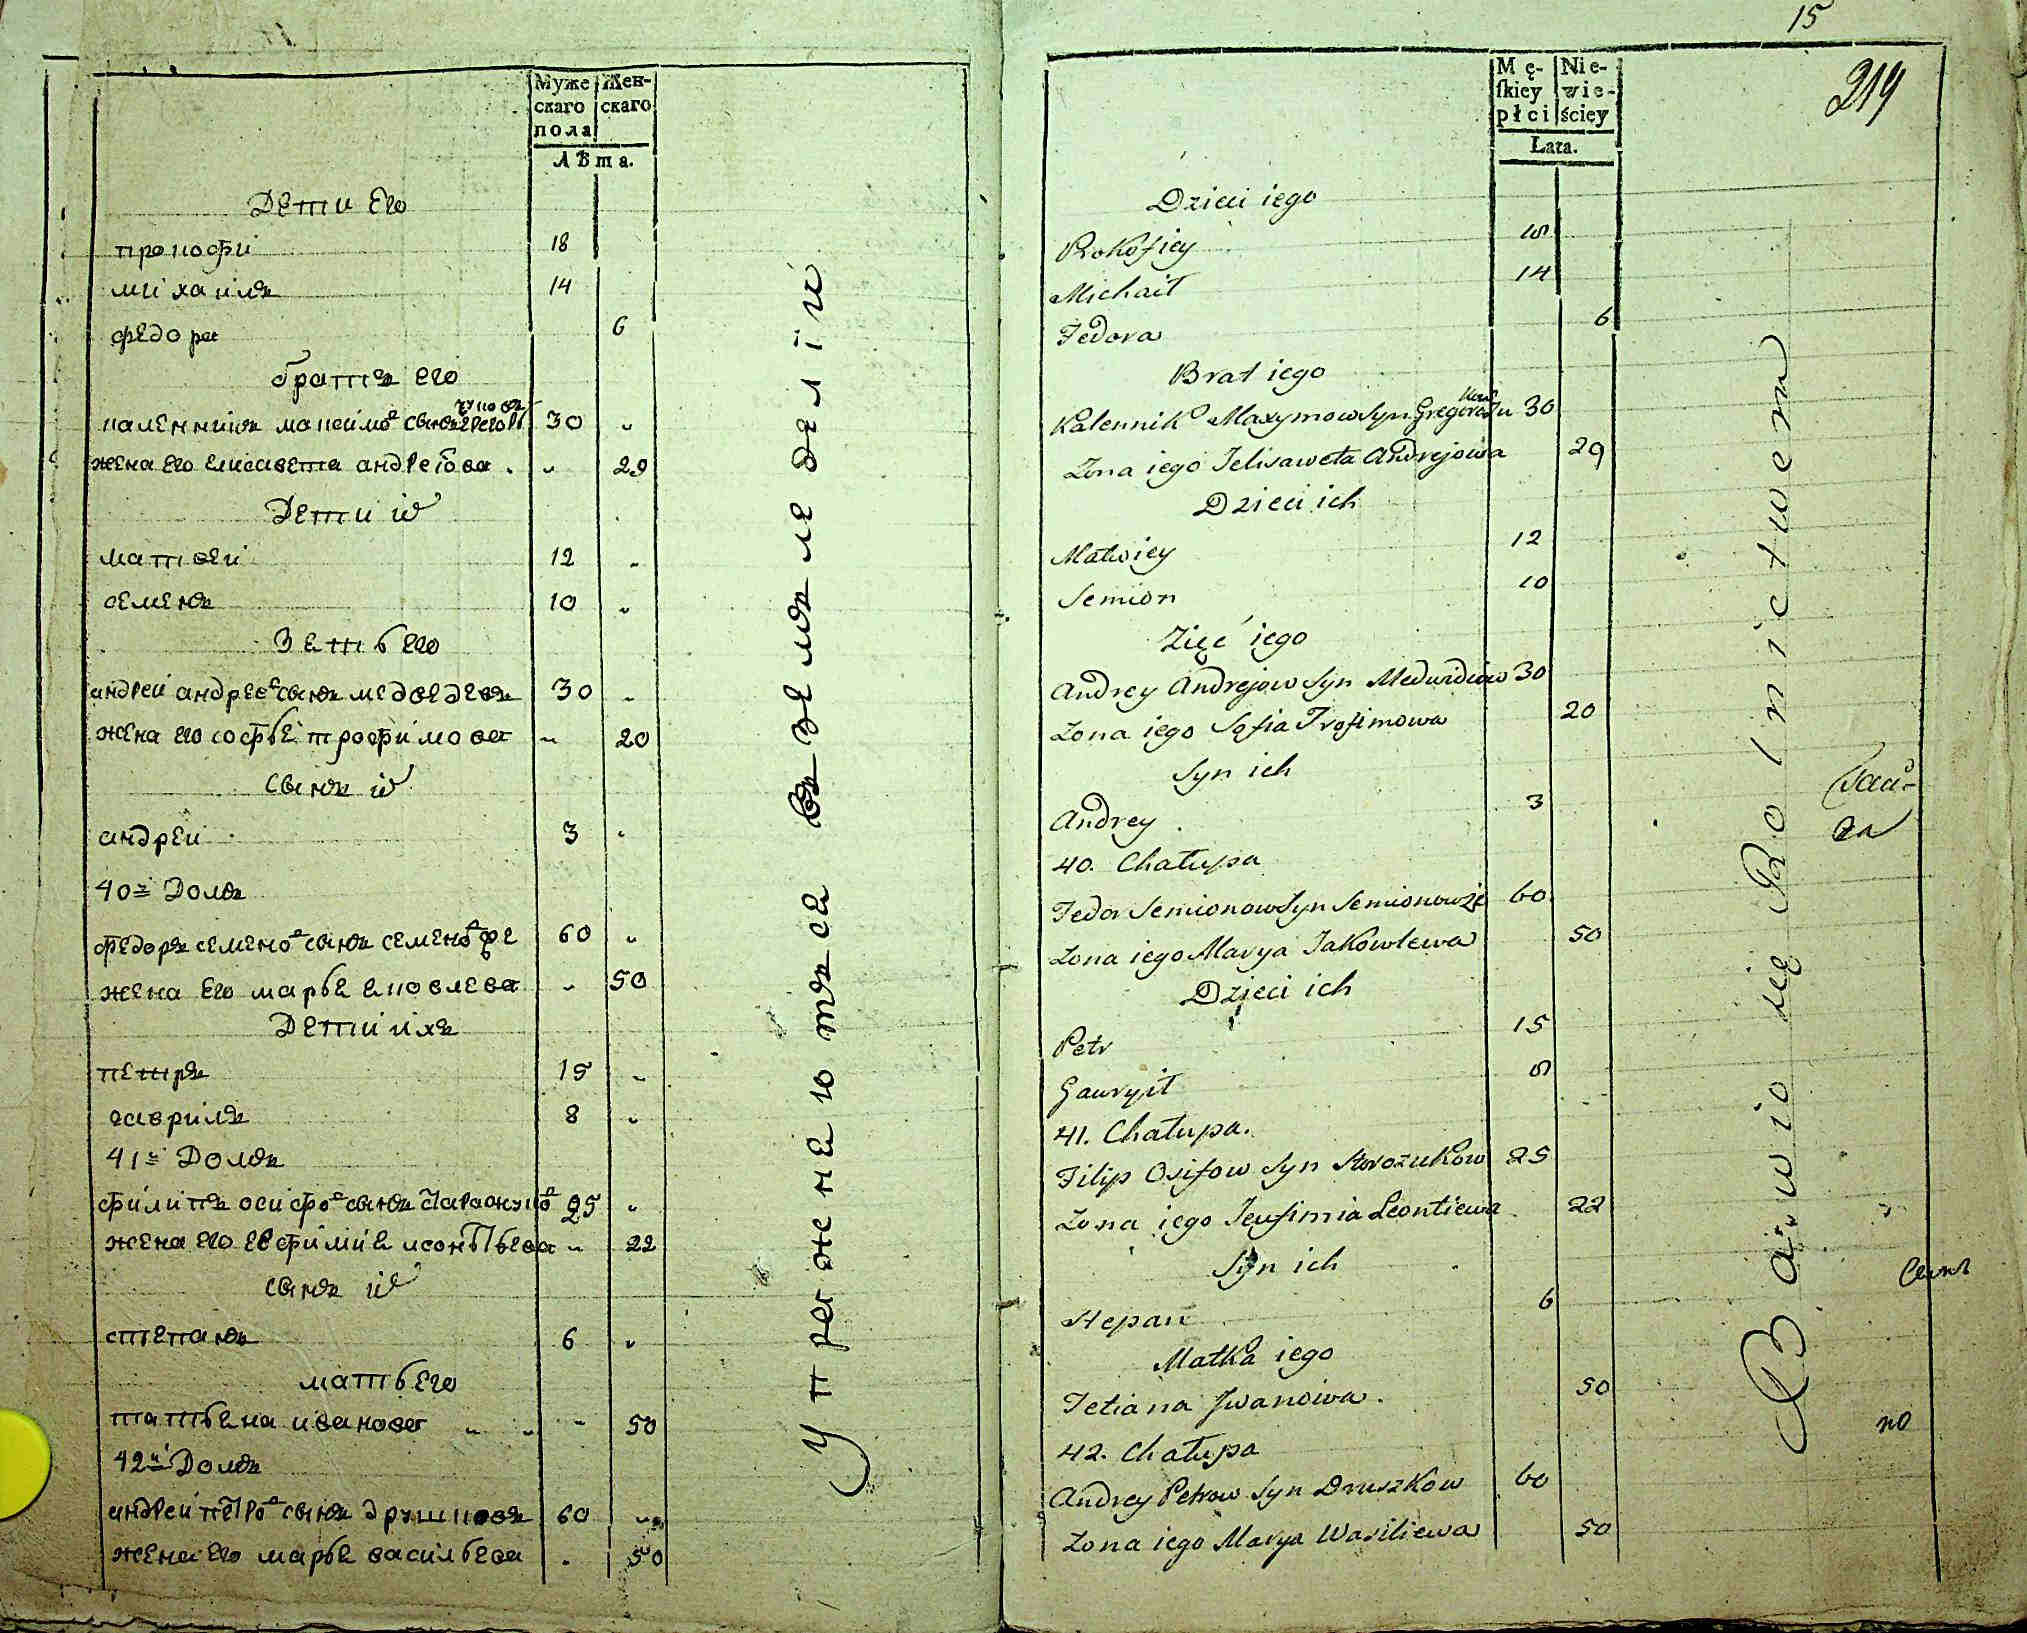 Муже
скаго
пола
Жен-
скаго
Лѣта.
Дети его
прокофи 18
михаилъ 14
федора 6
братъ его
каленникъ максимов сынъ 30 „
жена его елисавета андреева „ 29
Дети их
матвеи 12 „
семенъ 10 „
Зеть его
андреи андреев сынъ медведевъ 30 „
жена его софье трофимова „ 20
сынъ их
андреи 3 „
40й Домъ
федоръ семенов сынъ семенов же 60 „
жена его марьеековлева „ 50
Дети ихъ
петръ 15 „
гаврилъ 8 „
41й Домъ
филипъ осифов сынъ 25 „
жена его евфимие „ 22
сынъ их
степанъ 6 „
мать его
татьена иванова „ „ „ 50
42й Домъ
андреи петров сынъ друшковъ 60 „
жена его марье васильева „ 50
Упражнеютъса въ земледелїи
15
219
Mę-
ſkiey
płci
Nie-
wie-
ściey
Lata.
Dzieci iego
Prokofiey 18
Michaił 14
Fedora 6
Brat iego
Kalennik Maxymow Syn 30
Żona iego Jelisaweta Andrejowa 29
Dzieci ich
Matwiey 12
Semion 10
Zięć iego
Andrey Andrejow Syn Medwidiow 30
Żona iego Sofia Trofimowa 20
Syn ich
Andrey 3
40. Chałupa
Fedor Semionow Syn Semionow że 60
Żona iego Marya Jakowlewa 50
Dzieci ich
Petr 15
Gawryił 8
41. Chałupa.
Filip Osifow Syn Storożukow 25
Żona iego Jewfimia Leontiewa 22
Syn ich
Stepan 6
Matka iego
Tetiana Jwanowa. 50
42. Chałupa
Andrey Petrow Syn Druszkow 60
Żona iego Marya Wasiliewa 50
Bawio się Rolnictwem
но